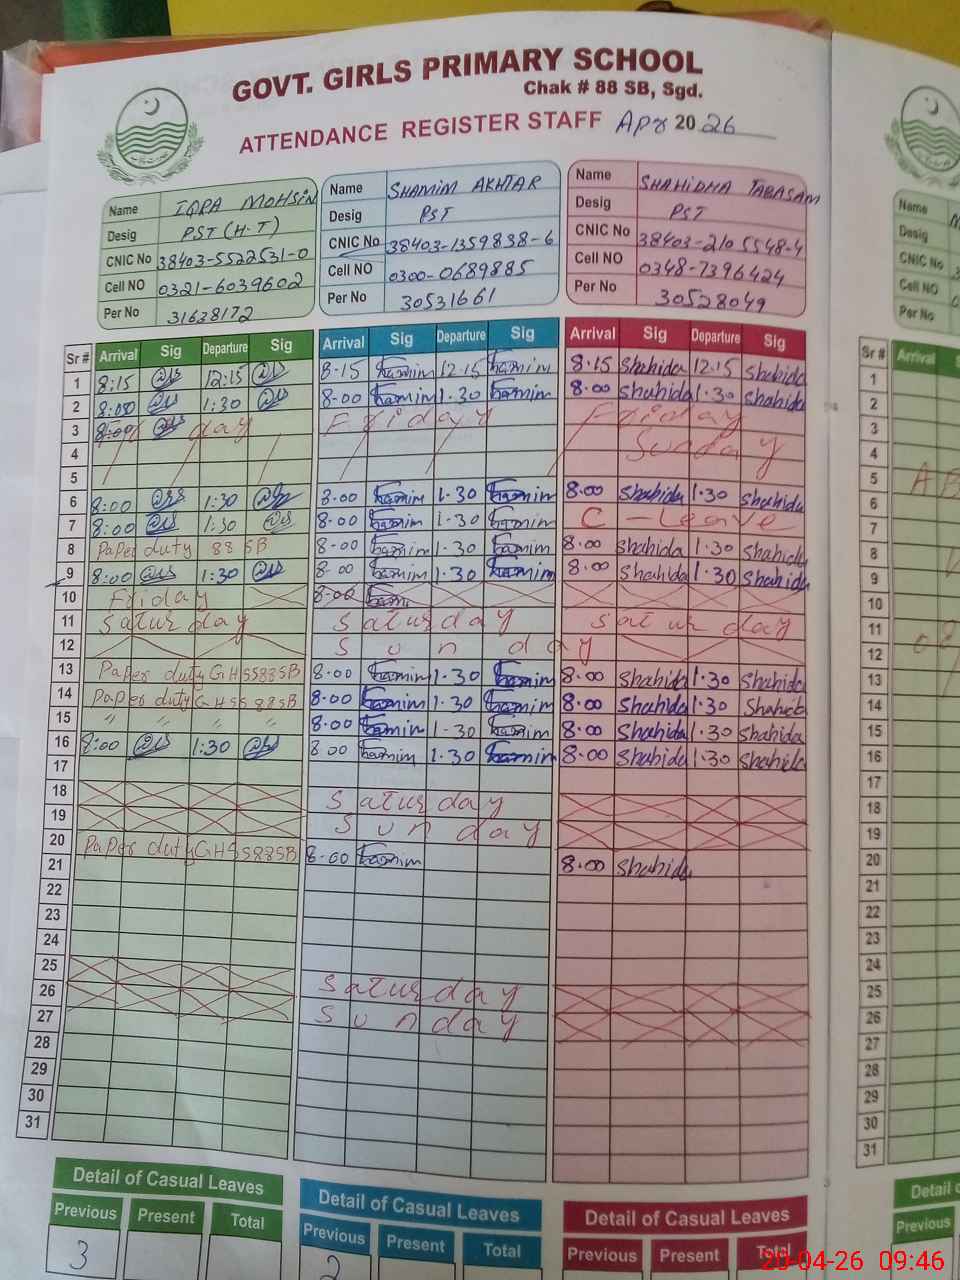 GOVT. GIRLS PRIMARY SCHOOL
Chak # 88 SB, Sgd.
ATTENDANCE REGISTER STAFF Apr 2026
Name IQRA MOHSIN Name SHAMIM AKHTAR Name SHAHIDHA TABASAM
Desig PST (H.T) Desig PST Desig PST
CNIC No 38403-5522531-0 CNIC No 38403-1359838-6 CNIC No 38403-2105548-4
Cell NO 0321-6039602 Cell NO 0300-0689885 Cell NO 0348-7396424
Per No 31638172 Per No 30531661 Per No 30528049
Sr # Arrival Sig Departure Sig Arrival Sig Departure Sig Arrival Sig Departure Sig
1 8:15 12:15 8-15 Shamim 12.15 Shamim 8.15 Shahida 12.15 Shahida
2 8:00 1:30 8-00 Shamim 1.30 Shamim 8.00 Shahida 1.30 Shahida
3 8:00 day Friday Friday
4 Sunday
5
6 8:00 1:30 8.00 Shamim 1.30 Shamim 8.00 Shahida 1.30 Shahida
7 8:00 1:30 8.00 Shamim 1.30 Shamim C - Leave
8 Paper duty 88 SB 8-00 Shamim 1.30 Shamim 8.00 Shahida 1.30 Shahida
9 8:00 1:30 8.00 Shamim 1.30 Shamim 8.00 Shahida 1.30 Shahida
10 Friday 8-00
11 Saturday Saturday Saturday
12 Sunday
13 Paper duty GHSS88SB 8.00 Shamim 1.30 Shamim 8.00 Shahida 1.30 Shahida
14 Paper duty GHSS 88SB 8.00 Shamim 1.30 Shamim 8.00 Shahida 1.30 Shaheb
15 " " " " 8.00 Shamim 1.30 Shamim 8.00 Shahida 1.30 Shahida
16 8:00 1:30 8.00 Shamim 1.30 Shamim 8.00 Shahida 1.30 Shahida
17
18 Saturday
19 Sunday
20 Paper duty GHSS88SB 8.00 Shamim 8.00 Shahida
21
22
23
24
25 Saturday
26 Sunday
27
28
29
30
31
Detail of Casual Leaves Detail of Casual Leaves Detail of Casual Leaves
Previous Present Total Previous Present Total Previous Present Total
3 2
Name
Desig
CNIC No
Cell NO
Per No
Sr # Arrival
1
2
3
4
5
6
7
8
9
10
11
12
13
14
15
16
17
18
19
20
21
22
23
24
25
26
27
28
29
30
31
Previous
20-04-26 09:46